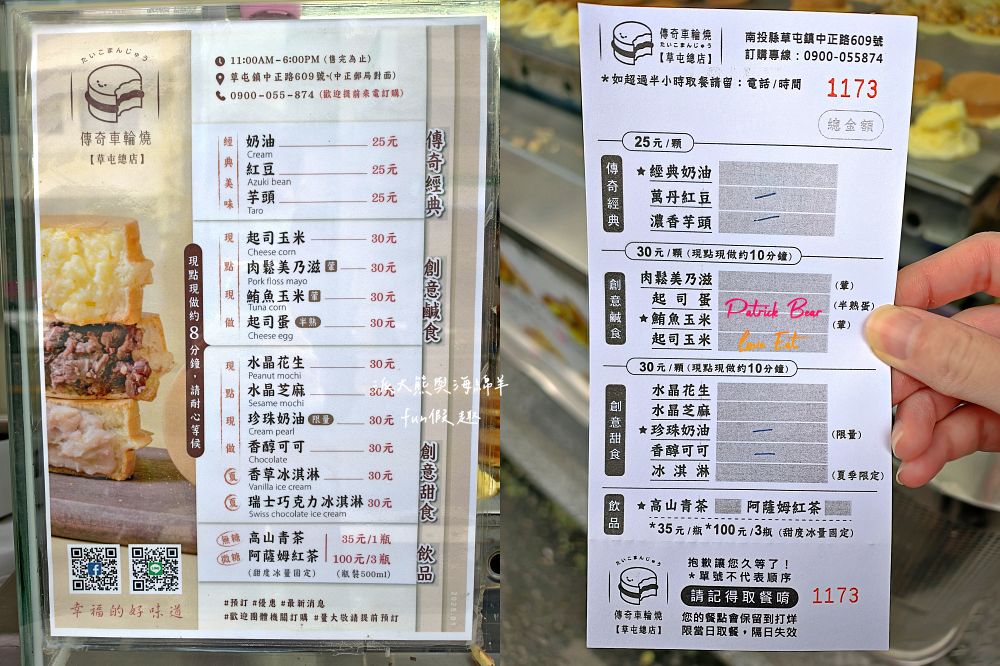 たいこまんじゅう
傳奇車輪燒
【草屯總店】
11:00AM-6:00PM (售完為止)
草屯鎮中正路609號-(中正郵局對面)
0900-055-874 (歡迎提前來電訂購)
傳奇經典
經典美味
奶油 25元
Cream
紅豆 25元
Azuki bean
芋頭 25元
Taro
創意鹹食
現點現做
起司玉米 30元
Cheese corn
肉鬆美乃滋 葷 30元
Pork floss mayo
鮪魚玉米 葷 30元
Tuna corn
起司蛋 半熟 30元
Cheese egg
現點現做約8分鐘,請耐心等候
創意甜食
現點現做
水晶花生 30元
Peanut mochi
水晶芝麻 30元
Sesame mochi
珍珠奶油 限量 30元
Cream pearl
香醇可可 30元
Chocolate
夏 香草冰淇淋 30元
Vanilla ice cream
夏 瑞士巧克力冰淇淋 30元
Swiss chocolate ice cream
飲品
無糖 高山青茶 35元/1瓶
微糖 阿薩姆紅茶 100元/3瓶
(甜度冰量固定) (瓶裝500ml)
幸福的好味道
#預訂 #優惠 #最新消息
#歡迎團體機關訂購 #量大敬請提前預訂
派大熊與海綿羊
fun假趣
傳奇車輪燒
たいこまんじゅう
【草屯總店】
南投縣草屯鎮中正路609號
訂購專線:0900-055874
*如超過半小時取餐請留:電話/時間
1173
總金額
25元/顆
傳奇經典
★經典奶油
萬丹紅豆
濃香芋頭
30元/顆 (現點現做約10分鐘)
創意鹹食
肉鬆美乃滋 (葷)
起司蛋 (半熟蛋)
★鮪魚玉米 (葷)
起司玉米
Patrick Bear
Love Eat
30元/顆 (現點現做約10分鐘)
創意甜食
水晶花生
水晶芝麻
★珍珠奶油 (限量)
香醇可可
冰淇淋 (夏季限定)
飲品
★高山青茶 阿薩姆紅茶
*35元/瓶 *100元/3瓶 (甜度冰量固定)
たいこまんじゅう
傳奇車輪燒
【草屯總店】
抱歉讓您久等了!
*單號不代表順序
請記得取餐唷 1173
您的餐點會保留到打烊
限當日取餐,隔日失效